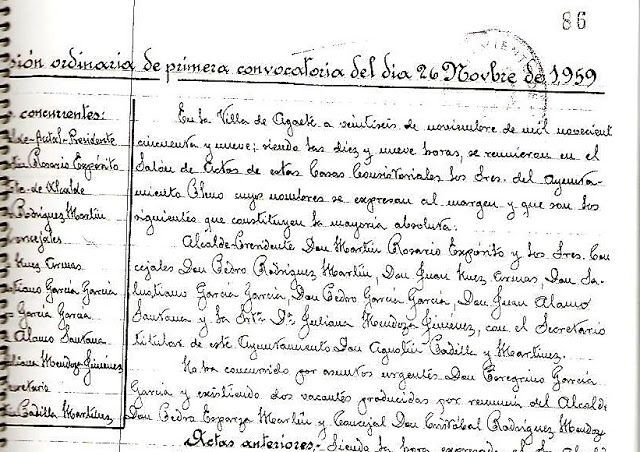 86
sión ordinaria de primera convocatoria del dia 26 Novbre de 1959
concurrentes:
Presidente
Rosario Expósito
de Alcalde
Rodriguez Martín
Concejales
Nuez Armas
García García
García García
Alamo Santana
Juliana Mendoza Giménez
Secretario
Padilla Martínez
En la Villa de Agaete a veintiseis de noviembre de mil novecient
cincuenta y nueve; siendo las diez y nueve horas, se reunieron en el
Salón de Actos de estas Casas Consistoriales los Sres. del Ayunta-
miento Pleno cuyos nombres se expresan al margen y que son los
siguientes que constituyen la mayoría absoluta:
Alcalde-Presidente Don Martín Rosario Expósito y los Sres. Con
cejales Don Pedro Rodriguez Martín, Don Juan Nuez Armas, Don Sa-
lustiano García García, Don Pedro García García, Don Juan Alamo
Santana y la Srta. Dª Juliana Mendoza Giménez, con el Secretario
titular de este Ayuntamiento Don Agustín Padilla y Martínez.
No ha concurrido por asuntos urgentes Don Peregrino García
García y existiendo dos vacantes producidas por renuncia del Alcalde
Don Pedro Esparza Martín y Concejal Don Cristóbal Rodriguez Mendoz
Actas anteriores.- Siendo la hora expresada